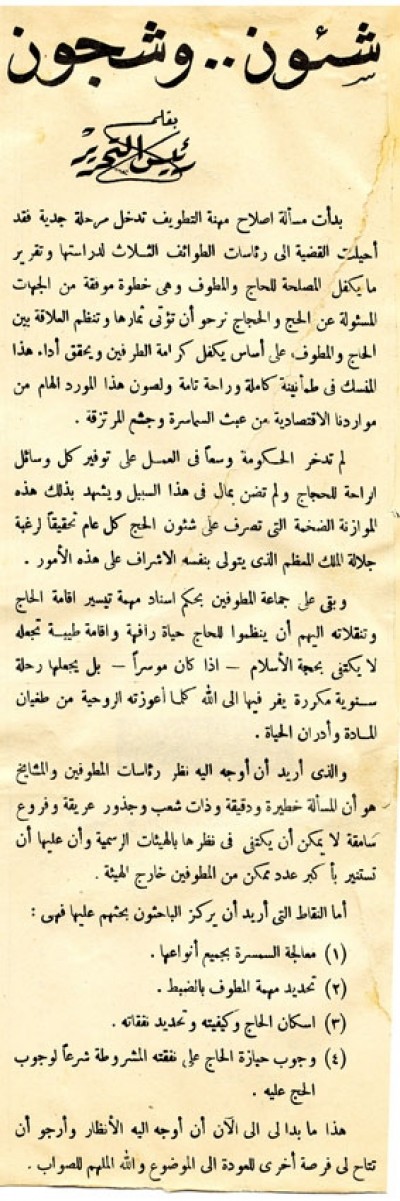 شئون .. وشجون
بقلم
رئيس التحرير
بدأت مسألة اصلاح مهنة التطويف تدخل مرحلة جدية فقد
أحيلت القضية الى رئاسات الطوائف الثلاث لدراستها وتقرير
ما يكفل المصلحة للحاج والمطوف وهى خطوة موفقة من الجهات
المسئولة عن الحج والحجاج نرجو أن تؤتى ثمارها وتنظم العلاقة بين
الحاج والمطوف على أساس يكفل كرامة الطرفين ويحقق أداء هذا
المنسك فى طمأنينة كاملة وراحة تامة ولصون هذا المورد الهام من
مواردنا الاقتصادية من عبث السماسرة وجشع المرتزقة .
لم تدخر الحكومة وسعاً فى العمل على توفير كل وسائل
اراحة للحجاج ولم تضن بمال فى هذا السبيل ويشهد بذلك هذه
الموازنة الضخمة التى تصرف على شئون الحج كل عام تحقيقاً لرغبة
جلالة الملك المعظم الذى يتولى بنفسه الاشراف على هذه الأمور .
وبقى على جماعة المطوفين بحكم اسناد مهمة تيسير اقامة الحاج
وتنقلاته اليهم أن ينظموا للحاج حياة رافهة واقامة طيبة تجعله
لا يكتفى بحجة الأسلام — اذا كان موسراً — بل يجعلها رحلة
سنوية مكررة يفر فيها الى الله كلما أعوزته الروحية من طغيان
المادة وأدران الحياة .
والذى أريد أن أوجه اليه نظر رئاسات المطوفين والمشايخ
هو أن المسألة خطيرة ودقيقة وذات شعب وجذور عريقة وفروع
سامقة لا يمكن أن يكتفى فى نظرها بالهيئات الرسمية وأن عليها أن
تستنير بأكبر عدد ممكن من المطوفين خارج الهيئة .
أما النقاط التى أريد أن يركز الباحثون بحثهم عليها فهى :
(١) معالجة السمسرة بجميع أنواعها .
(٢) تحديد مهمة المطوف بالضبط .
(٣) اسكان الحاج وكيفيته وتحديد نفقاته .
(٤) وجوب حيازة الحاج على نفقته المشروطة شرعاً لوجوب
الحج عليه .
هذا ما بدا لى الى الآن أن أوجه اليه الأنظار وأرجو أن
تتاح لى فرصة أخرى للعودة الى الموضوع والله الملهم للصواب .